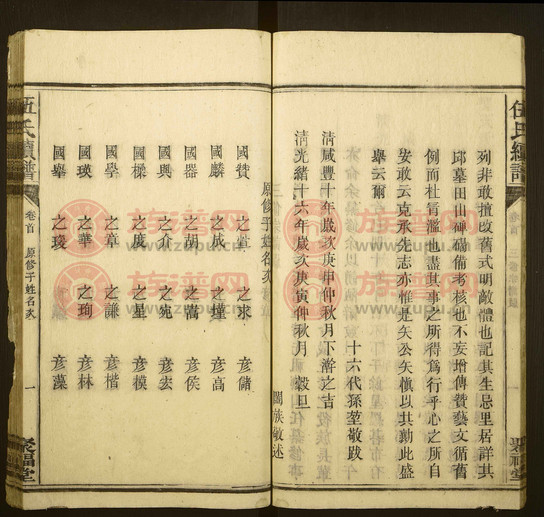 伍氏續譜
卷首
列非敢擅改舊式明敵體也記其生忌里居詳其
邱墓田山碑碣備考核也不妄增傳贊藝文循舊
例而杜冒濫也盡其事之所得為行乎心之所自
安敢云克承先志亦惟是矢公矢慎以共勷此盛
舉云爾
十六代孫堃敬跋
清咸豐十年歲次庚申仲秋月下澣之吉
清光緒十六年歲次庚寅仲秋月 穀旦
闔族敬述
聚福堂
原修子姓名次
國贊 之堂 之求 彥儲
國麟 之成 之瑾 彥高
國器 之胡 之嵩 彥侯
國興 之介 之宛 彥宏
國樑 之度 之星 彥模
國學 之章 之謙 彥楷
國瑛 之華 之珣 彥林
國舉 之琰 彥藻
伍氏續譜
卷首 原修子姓名次
一
聚福堂
族谱网
www.zupu.cn